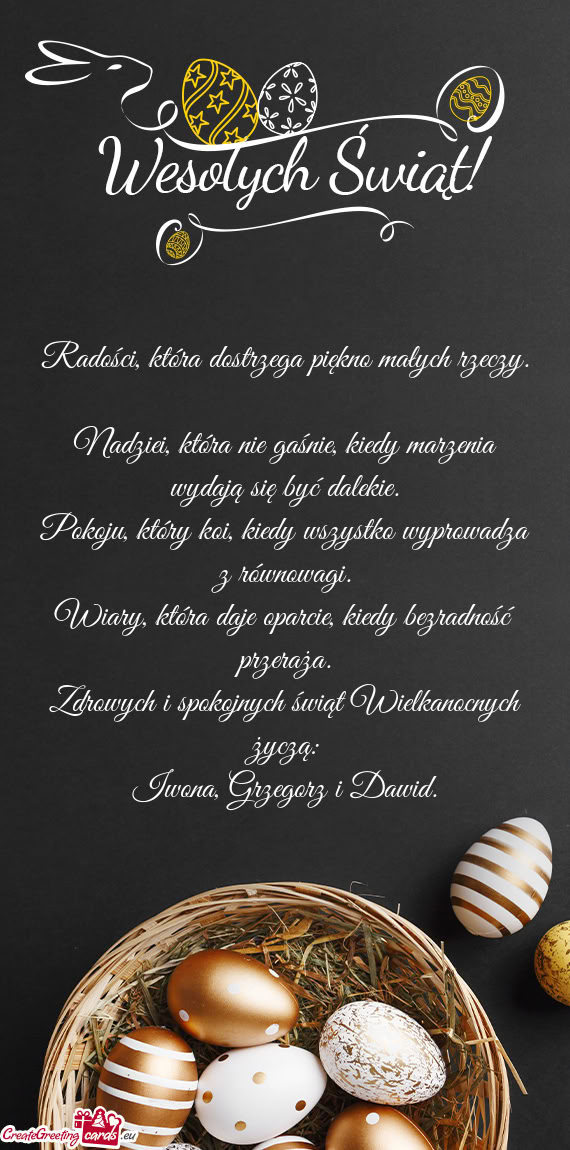 Wesołych Świąt!
Radości, która dostrzega piękno małych rzeczy.
Nadziei, która nie gaśnie, kiedy marzenia
wydają się być dalekie.
Pokoju, który koi, kiedy wszystko wyprowadza
z równowagi.
Wiary, która daje oparcie, kiedy bezradność
przeraża.
Zdrowych i spokojnych świąt Wielkanocnych
życzą:
Iwona, Grzegorz i Dawid.
CreateGreeting cards .eu